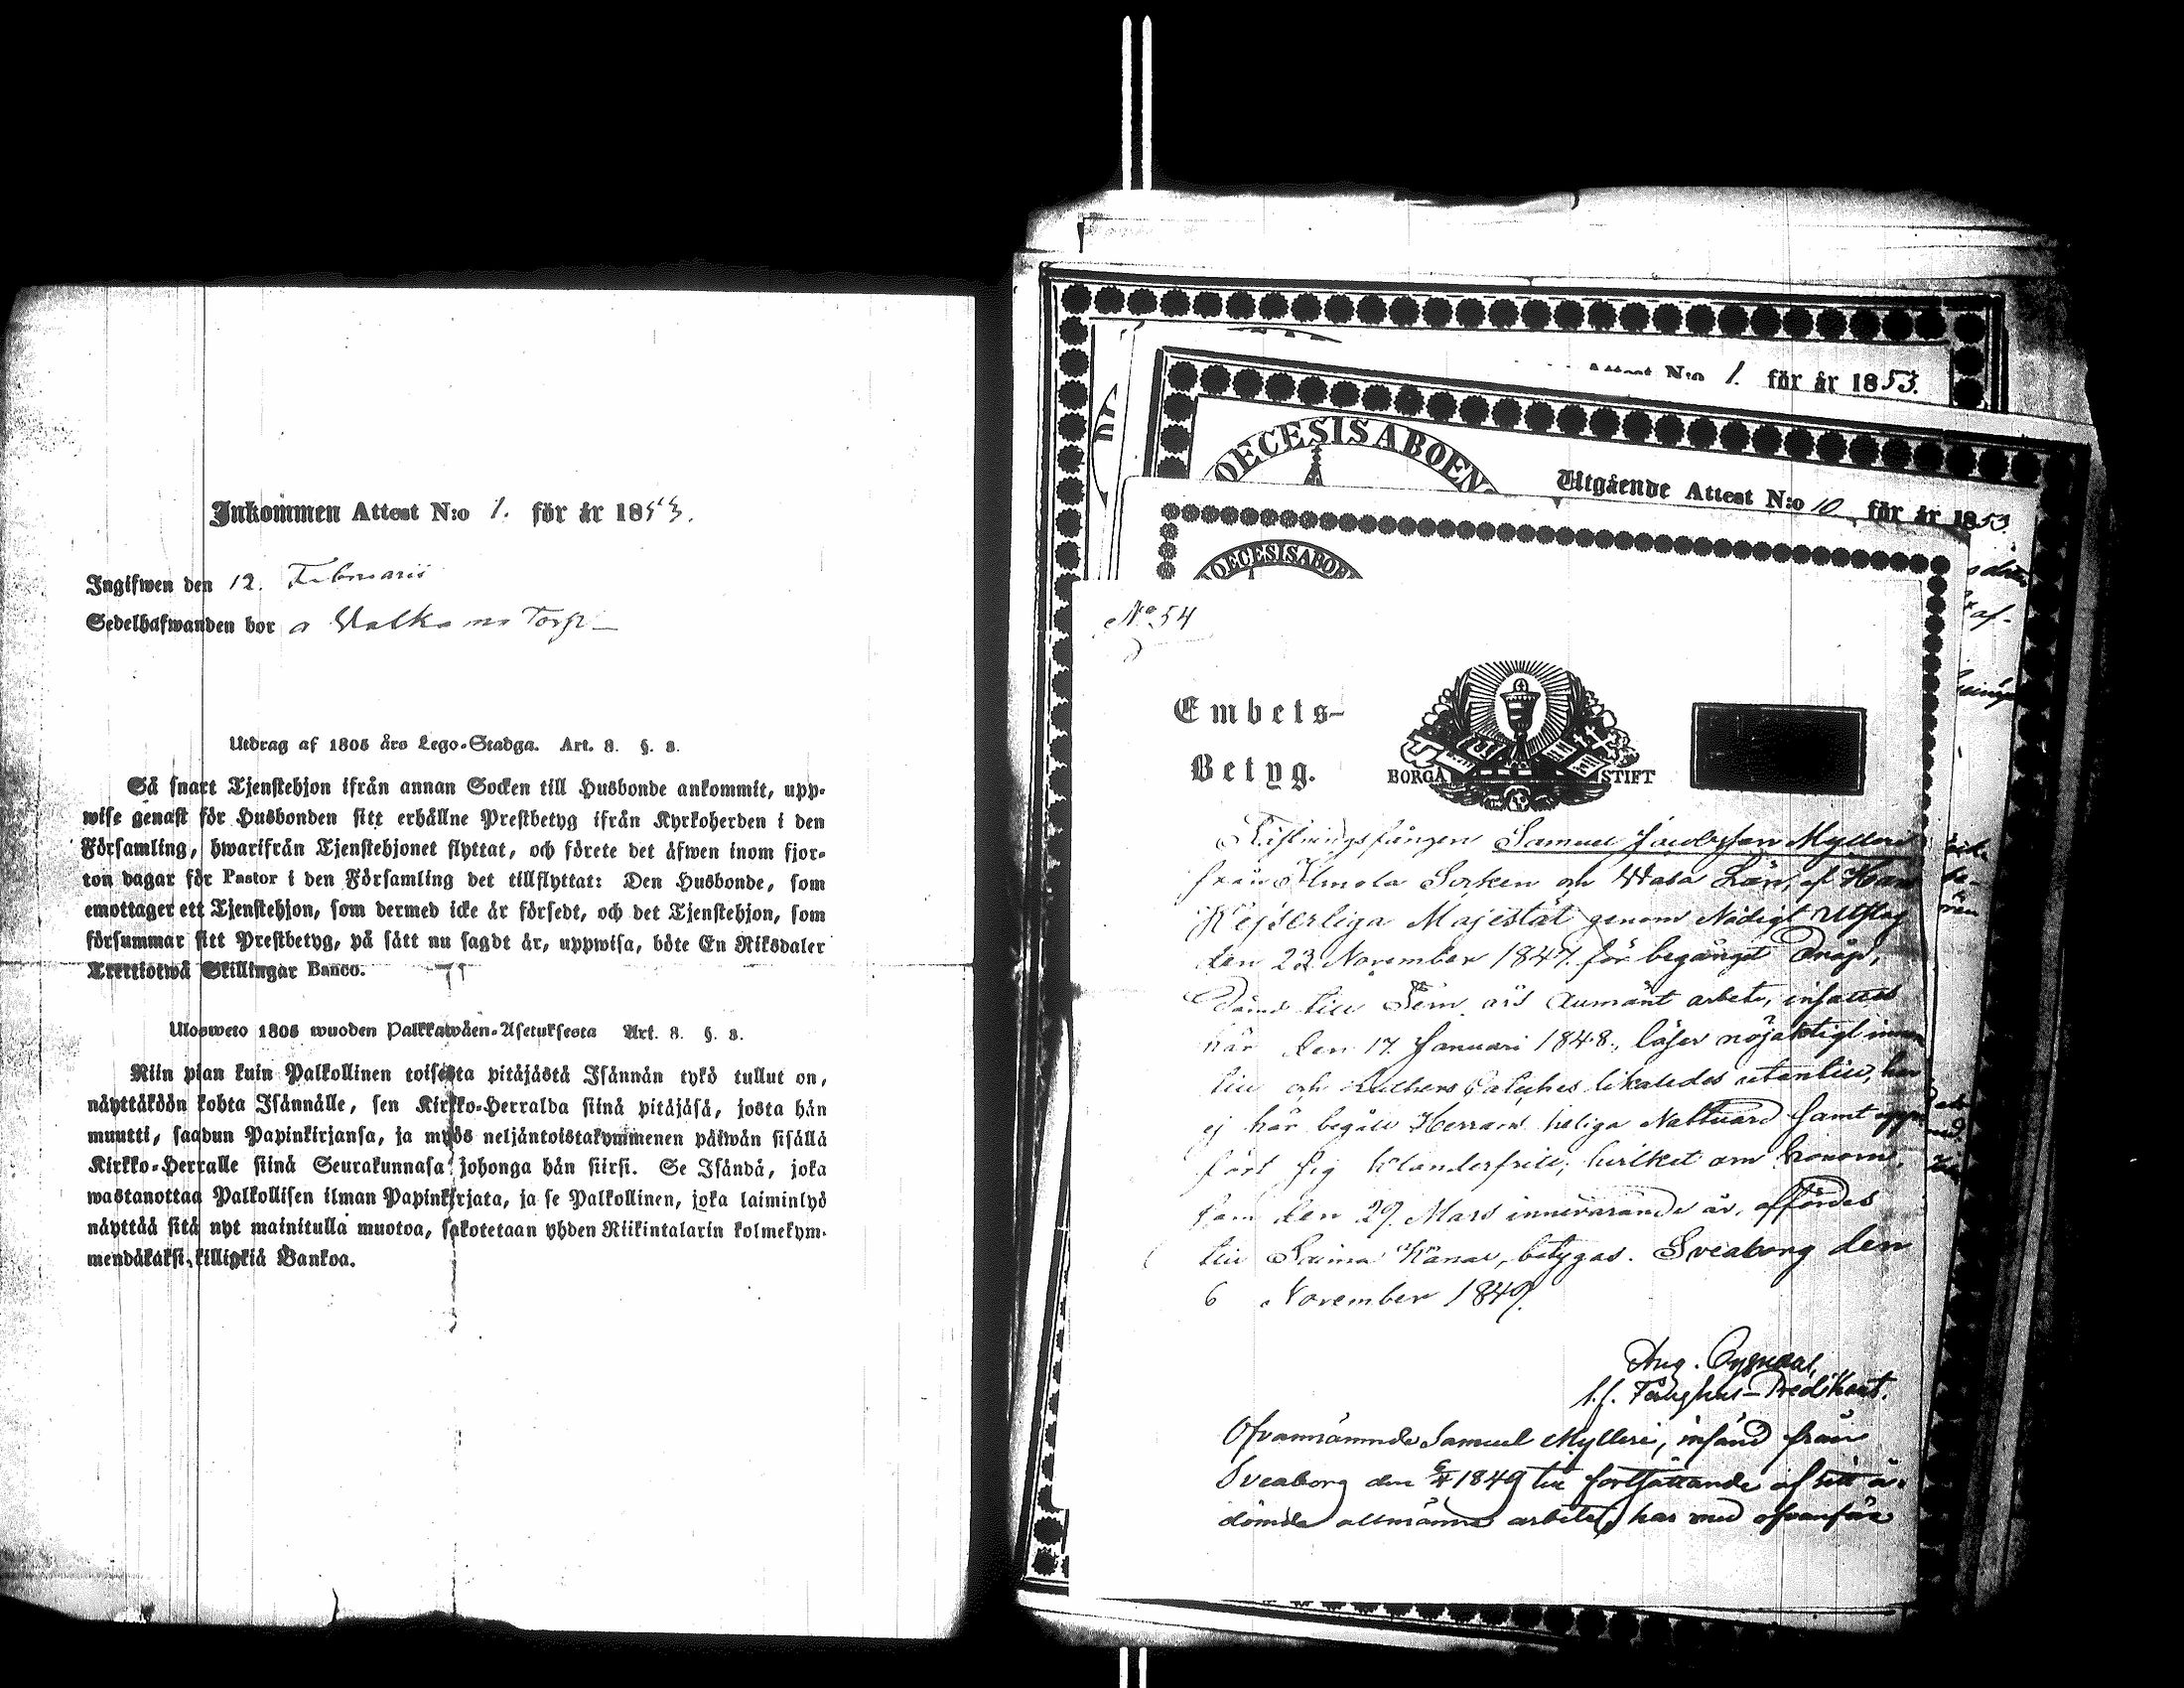 Inkommen Attest N:o 1. för år 1853.
Ingifwen den 12. Februarii
Sedelhafwanden bor a Torp
Utdrag af 1805 års Lego-Stadga. Art. 8. §. 3.
Så snart Tjenstehjon ifrån annan Socken till Husbonde ankommit, upp-
wise genast för Husbonden sitt erhållne Prestbetyg ifrån Kyrkoherden i den
Församling, hwarifrån Tjenstehjonet flyttat, och förete det äfwen inom fjor-
ton dagar för Pastor i den Församling det tillflyttat: Den Husbonde, som
emottager ett Tjenstehjon, som dermed icke är försedt, och det Tjenstehjon, som
försummar sitt Prestbetyg, på sätt nu sagdt är, uppwisa, böte En Riksdaler
Trettiotwå Skillingar Banco.
Ulosweto 1805 wuoden Palkkawäen-Asetuksesta Art. 8. §. 3.
Niin pian kuin Palkollinen toisesta pitäjästä Isännän tykö tullut on,
näyttäköön kohta Isännälle, sen Kirkko-Herralda siinä pitäjäsä, josta hän
muutti, saadun Papinkirjansa, ja myös neljäntoistakymmenen päiwän sisällä
Kirkko-Herralle siinä Seurakunnasa johonga hän siirsi. Se Isändä, joka
wastanottaa Palkollisen ilman Papinkirjata, ja se Palkollinen, joka laiminlyö
näyttää sitä nyt mainitulla muotoa, sakotetaan yhden Riikintalarin kolmekym-
mendäkaksi killingiä Bankoa.
Attest N:o 1. för år 1853.
DIOECESIS ABOENS
Utgående Attest N:o 10 för år 1853.
DIOECESIS ABOEN
No 54
Embets-
Betyg.
BORGÅ STIFT
Fästningsfången Samuel Jacobsson Mylleri
från Ilmola Socken och Wasa Län, af Hans
Kejserliga Majestät genom Nådigt Utslag
den 23 November 1847. för begånget dråp,
dömd till Fem års allmänt arbete, insattes
här den 17. Januari 1848., läser nöjaktigt innan
till och Luthers Cateches likaledes utantill, har
ej här begått Herrans heliga Nattvard samt upp-
fört sig klanderfritt; hvilket om honom,
som den 29. Mars innevarande år, affördes
till Saima Kanal, betygas. Sveaborg den
6 November 1849.
Aug. Cygnæus,
t.f. Fånghus-Predikant.
Ofvannämnde Samuel Mylleri, insänd från
Sveaborg den 6/4 1849 till fortsättande af sitt å-
dömde allmänna arbete, har med ofvanför